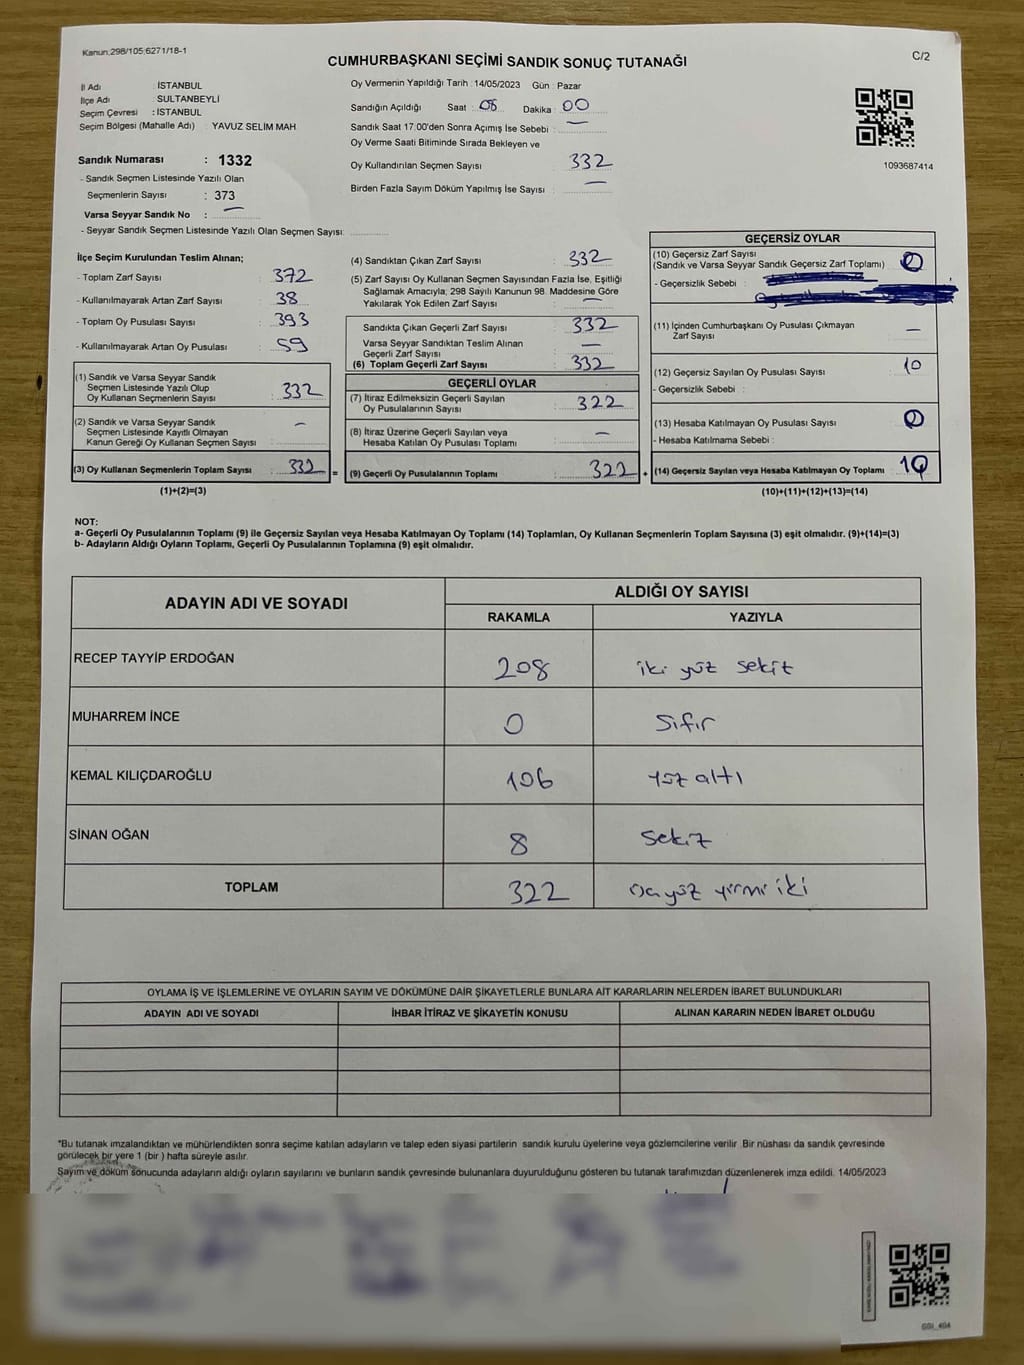 Kanun:298/105;6271/18-1
CUMHURBAŞKANI SEÇİMİ SANDIK SONUÇ TUTANAĞI
C/2
İl Adı : İSTANBUL
İlçe Adı : SULTANBEYLİ
Seçim Çevresi : İSTANBUL
Seçim Bölgesi (Mahalle Adı) : YAVUZ SELİM MAH
Sandık Numarası : 1332
- Sandık Seçmen Listesinde Yazılı Olan
Seçmenlerin Sayısı : 373
Varsa Seyyar Sandık No : —
- Seyyar Sandık Seçmen Listesinde Yazılı Olan Seçmen Sayısı:
Oy Vermenin Yapıldığı Tarih : 14/05/2023 Gün : Pazar
Sandığın Açıldığı Saat : 08 Dakika : 00
Sandık Saat 17:00'den Sonra Açımış İse Sebebi : —
Oy Verme Saati Bitiminde Sırada Bekleyen ve
Oy Kullandırılan Seçmen Sayısı 332
Birden Fazla Sayım Döküm Yapılmış İse Sayısı : —
1093687414
İlçe Seçim Kurulundan Teslim Alınan;
- Toplam Zarf Sayısı : 372
- Kullanılmayarak Artan Zarf Sayısı : 38
- Toplam Oy Pusulası Sayısı : 393
- Kullanılmayarak Artan Oy Pusulası : 59
(1) Sandık ve Varsa Seyyar Sandık
Seçmen Listesinde Yazılı Olup
Oy Kullanan Seçmenlerin Sayısı : 332
(2) Sandık ve Varsa Seyyar Sandık
Seçmen Listesinde Kayıtlı Olmayan
Kanun Gereği Oy Kullanan Seçmen Sayısı : —
(3) Oy Kullanan Seçmenlerin Toplam Sayısı : 332 =
(1)+(2)=(3)
(4) Sandıktan Çıkan Zarf Sayısı : 332
(5) Zarf Sayısı Oy Kullanan Seçmen Sayısından Fazla İse, Eşitliği
Sağlamak Amacıyla; 298 Sayılı Kanunun 98. Maddesine Göre
Yakılarak Yok Edilen Zarf Sayısı : —
Sandıkta Çıkan Geçerli Zarf Sayısı : 332
Varsa Seyyar Sandıktan Teslim Alınan
Geçerli Zarf Sayısı : —
(6) Toplam Geçerli Zarf Sayısı : 332
GEÇERLİ OYLAR
(7) İtiraz Edilmeksizin Geçerli Sayılan
Oy Pusulalarının Sayısı : 322
(8) İtiraz Üzerine Geçerli Sayılan veya
Hesaba Katılan Oy Pusulası Toplamı : —
(9) Geçerli Oy Pusulalarının Toplamı : 322 +
GEÇERSİZ OYLAR
(10) Geçersiz Zarf Sayısı
(Sandık ve Varsa Seyyar Sandık Geçersiz Zarf Toplamı) : 0
- Geçersizlik Sebebi :
(11) İçinden Cumhurbaşkanı Oy Pusulası Çıkmayan
Zarf Sayısı : —
(12) Geçersiz Sayılan Oy Pusulası Sayısı : 10
- Geçersizlik Sebebi :
(13) Hesaba Katılmayan Oy Pusulası Sayısı : 0
- Hesaba Katılmama Sebebi :
(14) Geçersiz Sayılan veya Hesaba Katılmayan Oy Toplamı : 10
(10)+(11)+(12)+(13)=(14)
NOT:
a- Geçerli Oy Pusulalarının Toplamı (9) ile Geçersiz Sayılan veya Hesaba Katılmayan Oy Toplamı (14) Toplamları, Oy Kullanan Seçmenlerin Toplam Sayısına (3) eşit olmalıdır. (9)+(14)=(3)
b- Adayların Aldığı Oyların Toplamı, Geçerli Oy Pusulalarının Toplamına (9) eşit olmalıdır.
ADAYIN ADI VE SOYADI
ALDIĞI OY SAYISI
RAKAMLA YAZIYLA
RECEP TAYYİP ERDOĞAN 208 iki yüz sekiz
MUHARREM İNCE 0 Sıfır
KEMAL KILIÇDAROĞLU 106 yüz altı
SİNAN OĞAN 8 Sekiz
TOPLAM 322 üçyüz yirmi iki
OYLAMA İŞ VE İŞLEMLERİNE VE OYLARIN SAYIM VE DÖKÜMÜNE DAİR ŞİKAYETLERLE BUNLARA AİT KARARLARIN NELERDEN İBARET BULUNDUKLARI
ADAYIN ADI VE SOYADI İHBAR İTİRAZ VE ŞİKAYETİN KONUSU ALINAN KARARIN NEDEN İBARET OLDUĞU
*Bu tutanak imzalandıktan ve mühürlendikten sonra seçime katılan adayların ve talep eden siyasi partilerin sandık kurulu üyelerine veya gözlemcilerine verilir. Bir nüshası da sandık çevresinde
görülecek bir yere 1 (bir ) hafta süreyle asılır.
Sayım ve döküm sonucunda adayların aldığı oyların sayılarını ve bunların sandık çevresinde bulunanlara duyurulduğunu gösteren bu tutanak tarafımızdan düzenlenerek imza edildi. 14/05/2023